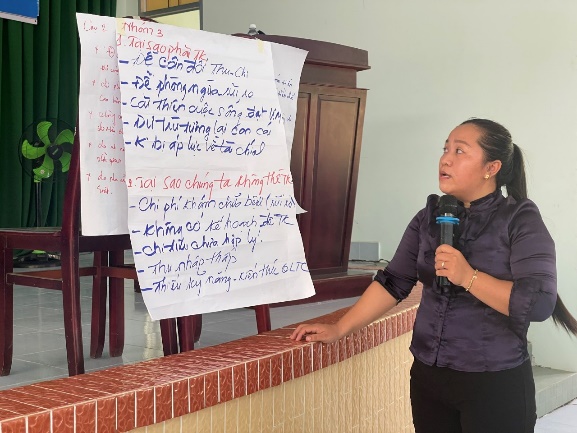 Nhóm 3
1. Tại sao phải TK
- Để cân đối Thu-Chi
- Đề phòng ngừa rủi ro
- Cải thiện cuộc sống
- Dự trù tương lai con cái
- K bị áp lực về tài chính
2. Tại sao chúng ta không thể TK
- Chi phí khám chữa bệnh (rủi ro)
- Không có kế hoạch để TK
- Chi tiêu chưa hợp lý
- Thu nhập thấp
- Thiếu kỹ năng - kiến thức QLTC